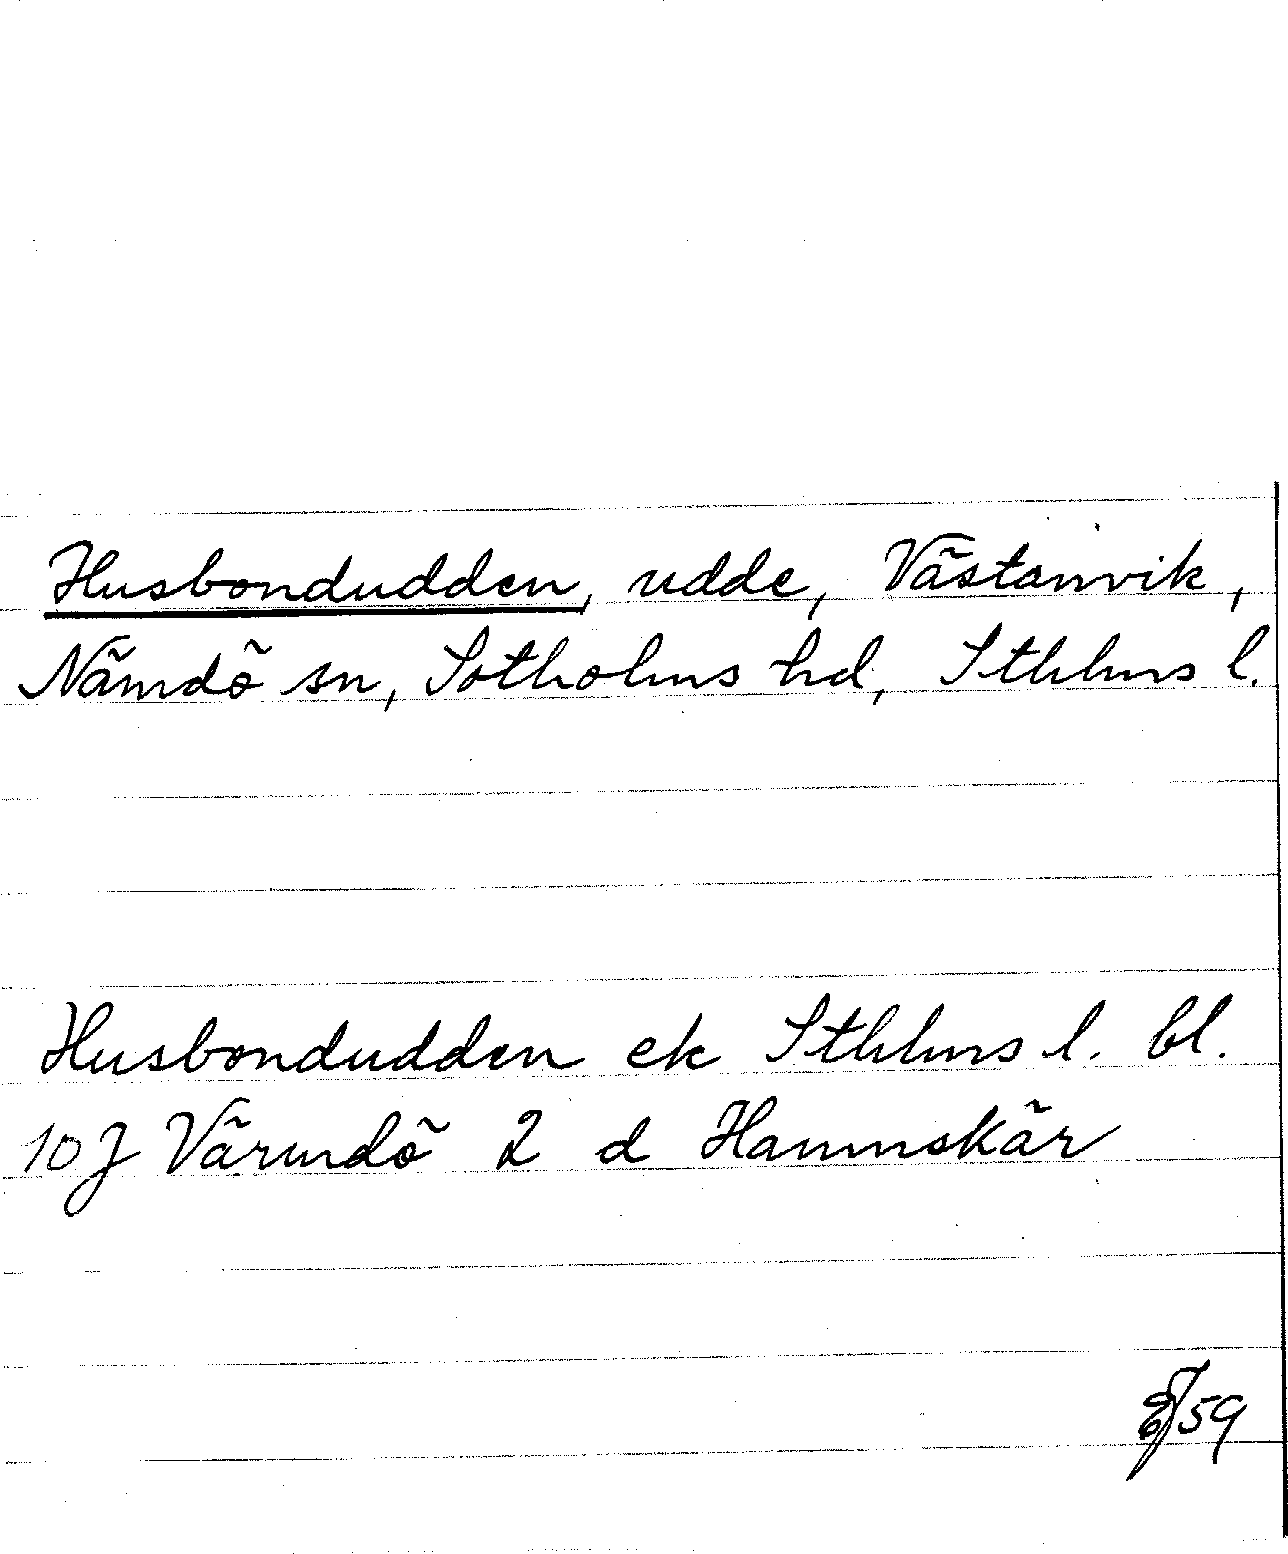 Husbondudden, udde, Västanvik,
Nämdö sn, Sotholms hd, Sthlms l.
Husbondudden ek Sthlms l. bl.
10 J Värmdö 2 d Hamnskär
59